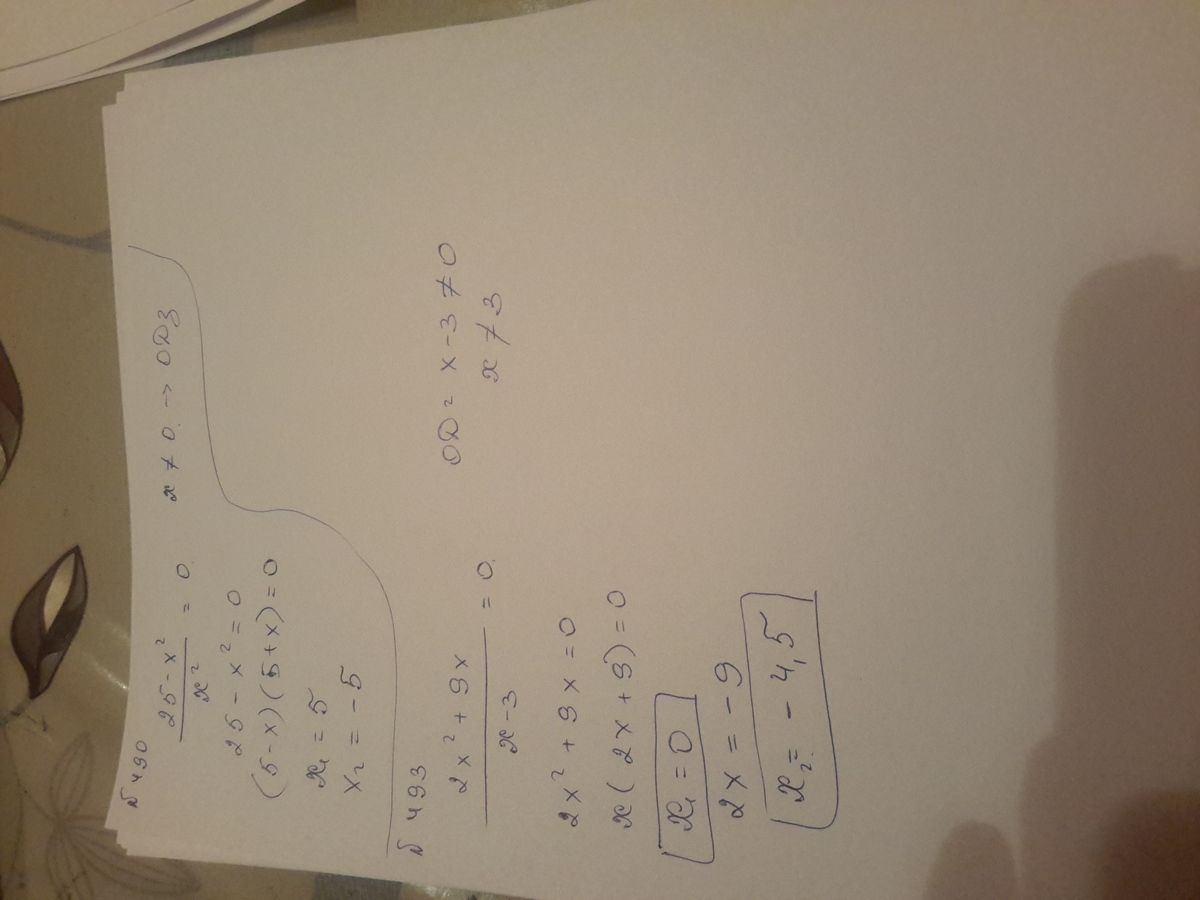 № 490
25-x² / x² = 0   x ≠ 0. → ОДЗ
25 - x² = 0
(5-x)(5+x) = 0
x₁ = 5
x₂ = -5
№ 493
2x² + 9x / x-3 = 0.   ОДЗ x-3 ≠ 0
x ≠ 3
2x² + 9x = 0
x(2x+9) = 0
x₁ = 0
2x = -9
x₂ = -4,5